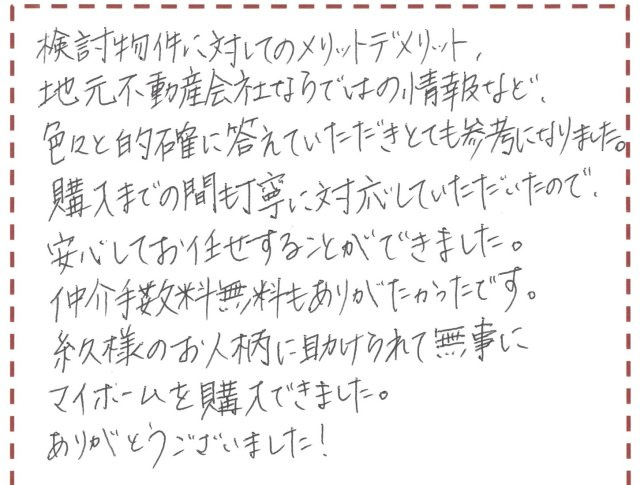 検討物件に対してのメリットデメリット、
地元不動産会社ならではの情報など、
色々と的確に答えていただきとても参考になりました。
購入までの間も丁寧に対応していただいたので、
安心してお任せすることができました。
仲介手数料無料もありがたかったです。
糸久様のお人柄に助けられて無事に
マイホームを購入できました。
ありがとうございました!